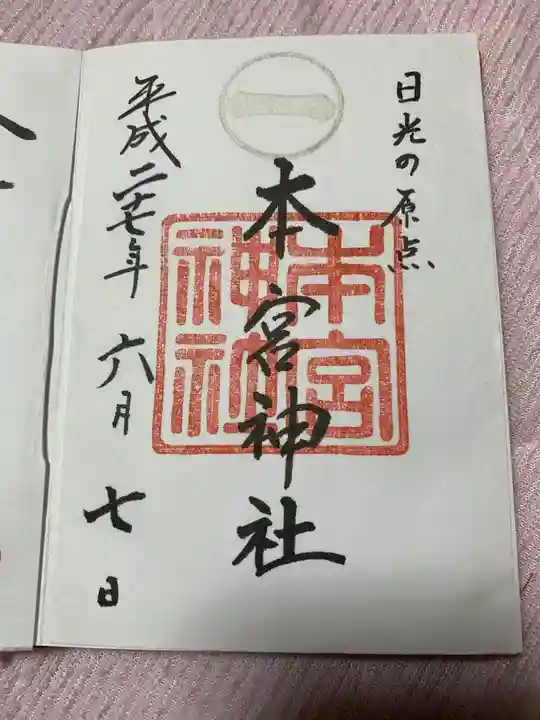 日光の原点
一
本宮神社
本宮
神社
平成二十七年 六月 七日